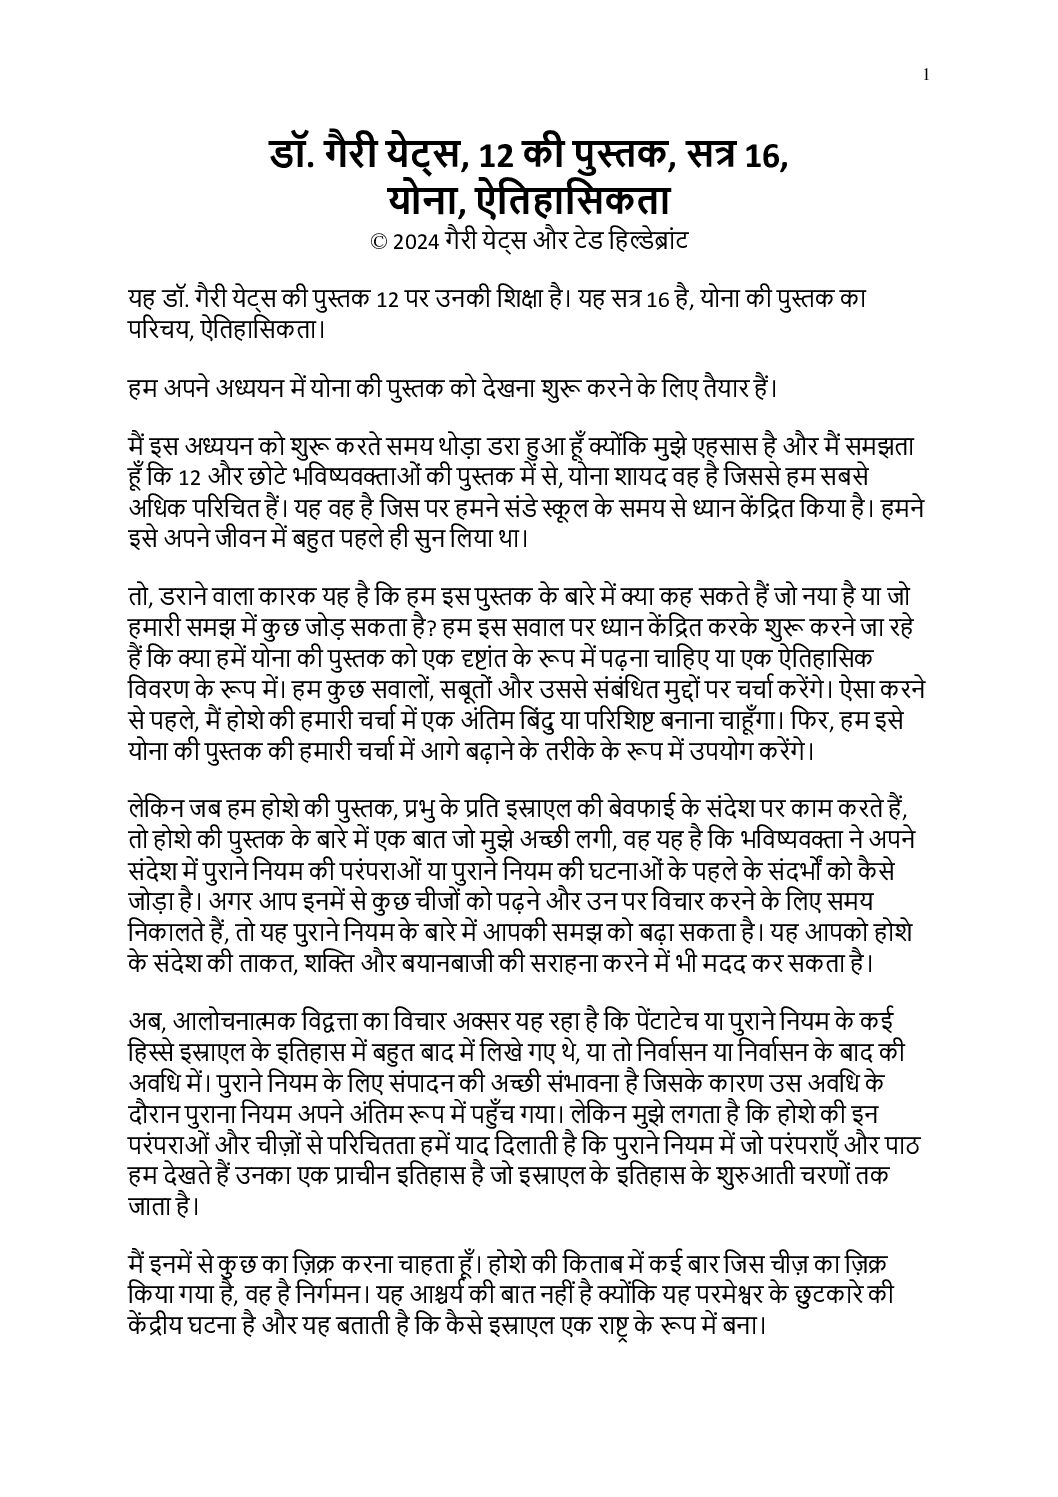 1
डॉ. गैरी येट्स, 12 की पुस्तक, सत्र 16,
योना, ऐतिहासिकता
© 2024 गैरी येट्स और टेड हिल्डेब्रांट
यह डॉ. गैरी येट्स की पुस्तक 12 पर उनकी शिक्षा है। यह सत्र 16 है, योना की पुस्तक का
परिचय, ऐतिहासिकता।
हम अपने अध्ययन में योना की पुस्तक को देखना शुरू करने के लिए तैयार हैं।
मैं इस अध्ययन को शुरू करते समय थोड़ा डरा हुआ हूँ क्योंकि मुझे एहसास है और मैं समझता
हूँ कि 12 और छोटे भविष्यवक्ताओं की पुस्तक में से, योना शायद वह है जिससे हम सबसे
अधिक परिचित हैं। यह वह है जिस पर हमने संडे स्कूल के समय से ध्यान केंद्रित किया है। हमने
इसे अपने जीवन में बहुत पहले ही सुन लिया था।
तो, डराने वाला कारक यह है कि हम इस पुस्तक के बारे में क्या कह सकते हैं जो नया है या जो
हमारी समझ में कुछ जोड़ सकता है? हम इस सवाल पर ध्यान केंद्रित करके शुरू करने जा रहे
हैं कि क्या हमें योना की पुस्तक को एक दृष्टांत के रूप में पढ़ना चाहिए या एक ऐतिहासिक
विवरण के रूप में। हम कुछ सवालों, सबूतों और उससे संबंधित मुद्दों पर चर्चा करेंगे। ऐसा करने
से पहले, मैं होशे की हमारी चर्चा में एक अंतिम बिंदु या परिशिष्ट बनाना चाहूँगा। फिर, हम इसे
योना की पुस्तक की हमारी चर्चा में आगे बढ़ाने के तरीके के रूप में उपयोग करेंगे।
लेकिन जब हम होशे की पुस्तक, प्रभु के प्रति इस्राएल की बेवफाई के संदेश पर काम करते हैं,
तो होशे की पुस्तक के बारे में एक बात जो मुझे अच्छी लगी, वह यह है कि भविष्यवक्ता ने अपने
संदेश में पुराने नियम की परंपराओं या पुराने नियम की घटनाओं के पहले के संदर्भों को कैसे
जोड़ा है। अगर आप इनमें से कुछ चीजों को पढ़ने और उन पर विचार करने के लिए समय
निकालते हैं, तो यह पुराने नियम के बारे में आपकी समझ को बढ़ा सकता है। यह आपको होशे
के संदेश की ताकत, शक्ति और बयानबाजी की सराहना करने में भी मदद कर सकता है।
अब, आलोचनात्मक विद्वत्ता का विचार अक्सर यह रहा है कि पेंटाटेच या पुराने नियम के कई
हिस्से इस्राएल के इतिहास में बहुत बाद में लिखे गए थे, या तो निर्वासन या निर्वासन के बाद की
अवधि में। पुराने नियम के लिए संपादन की अच्छी संभावना है जिसके कारण उस अवधि के
दौरान पुराना नियम अपने अंतिम रूप में पहुँच गया। लेकिन मुझे लगता है कि होशे की इन
परंपराओं और चीज़ों से परिचितता हमें याद दिलाती है कि पुराने नियम में जो परंपराएँ और पाठ
हम देखते हैं उनका एक प्राचीन इतिहास है जो इस्राएल के इतिहास के शुरुआती चरणों तक
जाता है।
मैं इनमें से कुछ का ज़िक्र करना चाहता हूँ। होशे की किताब में कई बार जिस चीज़ का ज़िक्र
किया गया है, वह है निर्गमन। यह आश्चर्य की बात नहीं है क्योंकि यह परमेश्वर के छुटकारे की
केंद्रीय घटना है और यह बताती है कि कैसे इस्राएल एक राष्ट्र के रूप में बना।